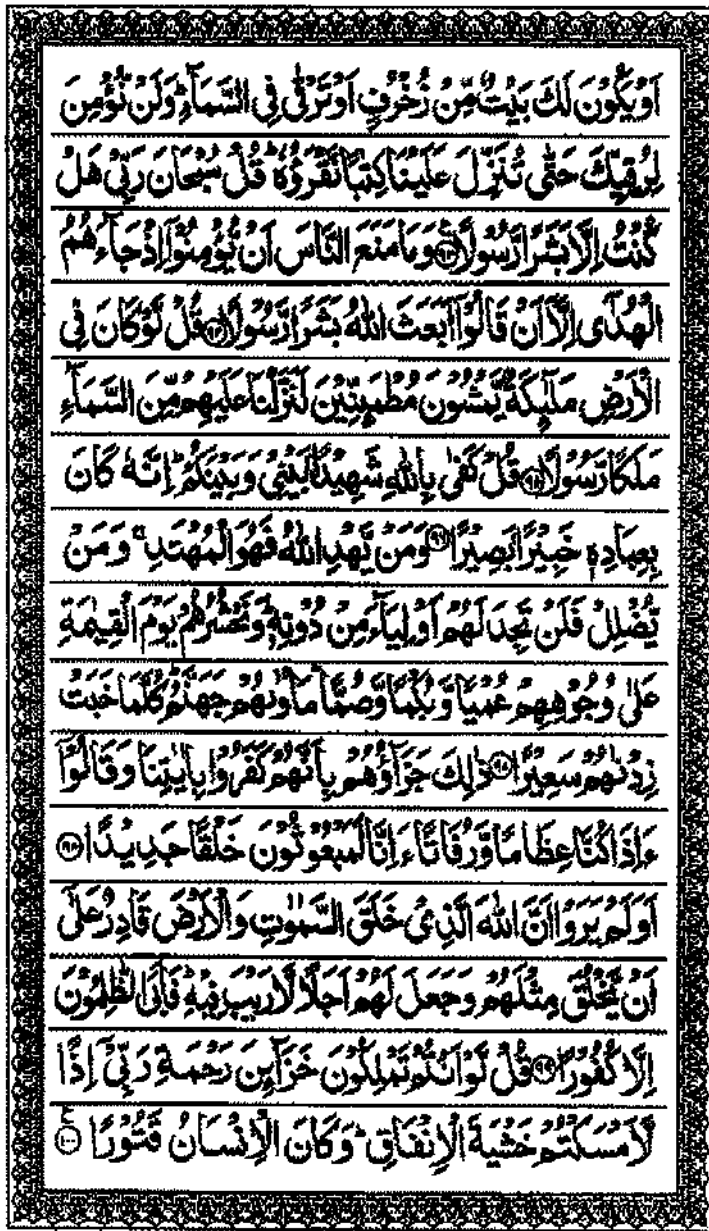 اَوۡ یَکُوۡنَ لَکَ بَیۡتٌ مِّنۡ زُخۡرُفٍ اَوۡ تَرۡقٰی فِی السَّمَآءِ ؕ وَ لَنۡ نُّؤۡمِنَ
لِرُقِیِّکَ حَتّٰی تُنَزِّلَ عَلَیۡنَا کِتٰبًا نَّقۡرَؤُہٗ ؕ قُلۡ سُبۡحَانَ رَبِّیۡ ہَلۡ
کُنۡتُ اِلَّا بَشَرًا رَّسُوۡلًا ﴿۹۳﴾ وَ مَا مَنَعَ النَّاسَ اَنۡ یُّؤۡمِنُوۡۤا اِذۡ جَآءَہُمُ
الۡہُدٰۤی اِلَّاۤ اَنۡ قَالُوۡۤا اَبَعَثَ اللّٰہُ بَشَرًا رَّسُوۡلًا ﴿۹۴﴾ قُلۡ لَّوۡ کَانَ فِی
الۡاَرۡضِ مَلٰٓئِکَۃٌ یَّمۡشُوۡنَ مُطۡمَئِنِّیۡنَ لَنَزَّلۡنَا عَلَیۡہِمۡ مِّنَ السَّمَآءِ
مَلَکًا رَّسُوۡلًا ﴿۹۵﴾ قُلۡ کَفٰی بِاللّٰہِ شَہِیۡدًۢا بَیۡنِیۡ وَ بَیۡنَکُمۡ ؕ اِنَّہٗ کَانَ
بِعِبَادِہٖ خَبِیۡرًۢا بَصِیۡرًا ﴿۹۶﴾ وَ مَنۡ یَّہۡدِ اللّٰہُ فَہُوَ الۡمُہۡتَدِ ۚ وَ مَنۡ
یُّضۡلِلۡ فَلَنۡ تَجِدَ لَہُمۡ اَوۡلِیَآءَ مِنۡ دُوۡنِہٖ ؕ وَ نَحۡشُرُہُمۡ یَوۡمَ الۡقِیٰمَۃِ
عَلٰی وُجُوۡہِہِمۡ عُمۡیًا وَّ بُکۡمًا وَّ صُمًّا ؕ مَاۡوٰىہُمۡ جَہَنَّمُ ؕ کُلَّمَا خَبَتۡ
زِدۡنٰہُمۡ سَعِیۡرًا ﴿۹۷﴾ ذٰلِکَ جَزَآؤُہُمۡ بِاَنَّہُمۡ کَفَرُوۡا بِاٰیٰتِنَا وَ قَالُوۡۤا
ءَ اِذَا کُنَّا عِظَامًا وَّ رُفَاتًا ءَ اِنَّا لَمَبۡعُوۡثُوۡنَ خَلۡقًا جَدِیۡدًا ﴿۹۸﴾
اَوَ لَمۡ یَرَوۡا اَنَّ اللّٰہَ الَّذِیۡ خَلَقَ السَّمٰوٰتِ وَ الۡاَرۡضَ قَادِرٌ عَلٰۤی
اَنۡ یَّخۡلُقَ مِثۡلَہُمۡ وَ جَعَلَ لَہُمۡ اَجَلًا لَّا رَیۡبَ فِیۡہِ ؕ فَاَبَی الظّٰلِمُوۡنَ
اِلَّا کُفُوۡرًا ﴿۹۹﴾ قُلۡ لَّوۡ اَنۡتُمۡ تَمۡلِکُوۡنَ خَزَآئِنَ رَحۡمَۃِ رَبِّیۡۤ اِذًا
لَّاَمۡسَکۡتُمۡ خَشۡیَۃَ الۡاِنۡفَاقِ ؕ وَ کَانَ الۡاِنۡسَانُ قَتُوۡرًا ﴿۱۰۰﴾